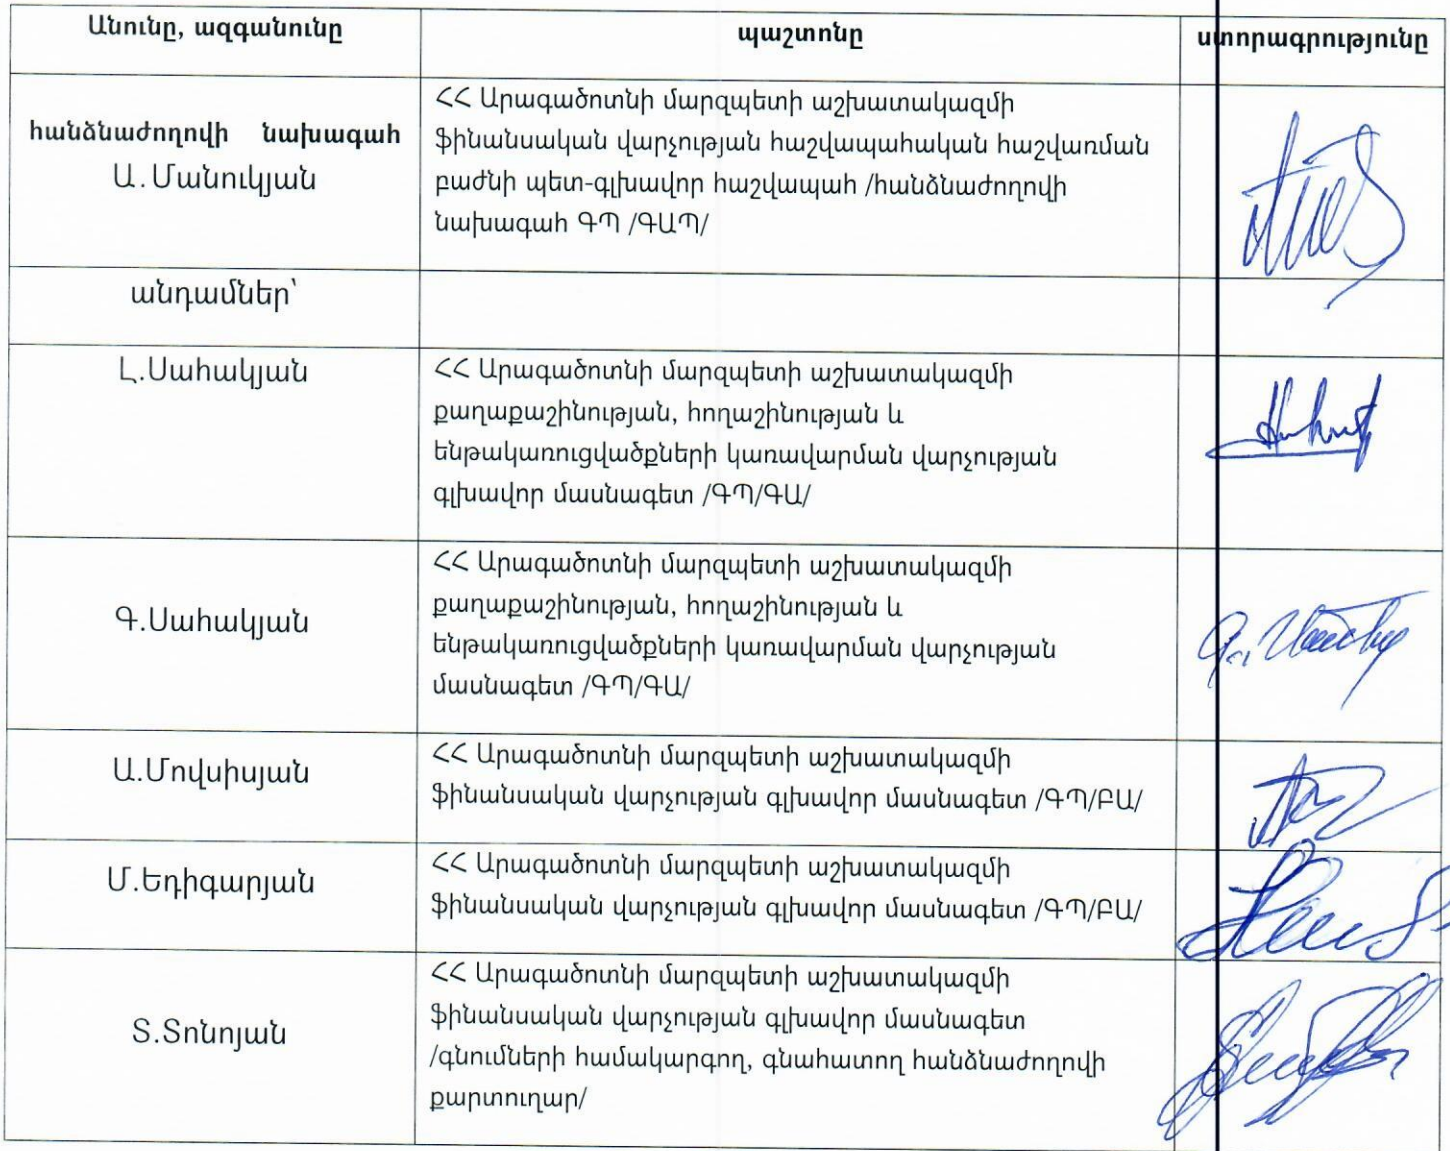 Անունը, ազգանունը
պաշտոնը
ստորագրությունը
հանձնաժողովի նախագահ
Ա.Մանուկյան
ՀՀ Արագածոտնի մարզպետի աշխատակազմի
ֆինանսական վարչության հաշվապահական հաշվառման
բաժնի պետ-գլխավոր հաշվապահ /հանձնաժողովի
նախագահ ԳՊ /ԳԱՊ/
անդամներ՝
Լ.Սահակյան
ՀՀ Արագածոտնի մարզպետի աշխատակազմի
քաղաքաշինության, հողաշինության և
ենթակառուցվածքների կառավարման վարչության
գլխավոր մասնագետ /ԳՊ/ԳԱ/
Գ.Սահակյան
ՀՀ Արագածոտնի մարզպետի աշխատակազմի
քաղաքաշինության, հողաշինության և
ենթակառուցվածքների կառավարման վարչության
մասնագետ /ԳՊ/ԳԱ/
Ա.Մովսիսյան
ՀՀ Արագածոտնի մարզպետի աշխատակազմի
ֆինանսական վարչության գլխավոր մասնագետ /ԳՊ/ԲԱ/
Մ.Եդիգարյան
ՀՀ Արագածոտնի մարզպետի աշխատակազմի
ֆինանսական վարչության գլխավոր մասնագետ /ԳՊ/ԲԱ/
Տ.Տոնոյան
ՀՀ Արագածոտնի մարզպետի աշխատակազմի
ֆինանսական վարչության գլխավոր մասնագետ
/գնումների համակարգող, գնահատող հանձնաժողովի
քարտուղար/